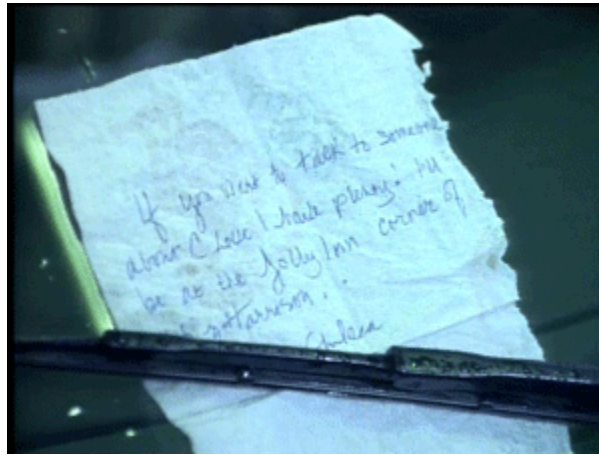 If you want to talk to someone
about C Love I have plenty. I'll
be at the Jolly Inn corner of
Harrison.
Chelsea